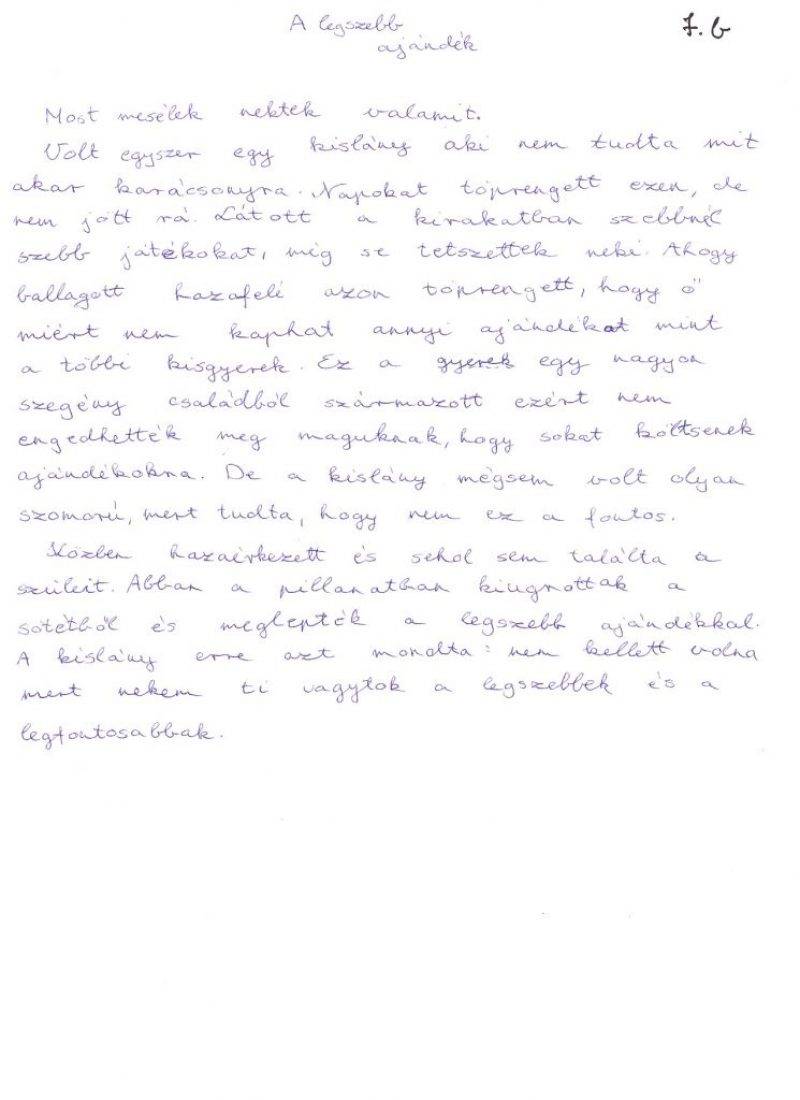 A legszebb
7. b
ajándék
Most mesélek nektek valamit.
Volt egyszer egy kislány aki nem tudta mit
akar karácsonyra. Napokat töprengett ezen, de
nem jött rá. Látott a kirakatban szebbnél
szebb játékokat, még se tetszettek neki. Ahogy
ballagott hazafelé azon töprengett, hogy ő
miért nem kaphat annyi ajándékat mint
a többi kisgyerek. Ez a gyerek egy nagyon
szegény családból származott ezért nem
engedhették meg maguknak, hogy sokat költsenek
ajándékokra. De a kislány mégsem volt olyan
szomorú, mert tudta, hogy nem ez a fontos.
Közben hazaérkezett és sehol sem találta a
szüleit. Abban a pillanatban kiugrottak a
sötétből és meglepték a legszebb ajándékkal.
A kislány erre azt mondta: nem kellett volna
mert nekem ti vagytok a legszebbek és a
legfontosabbak.